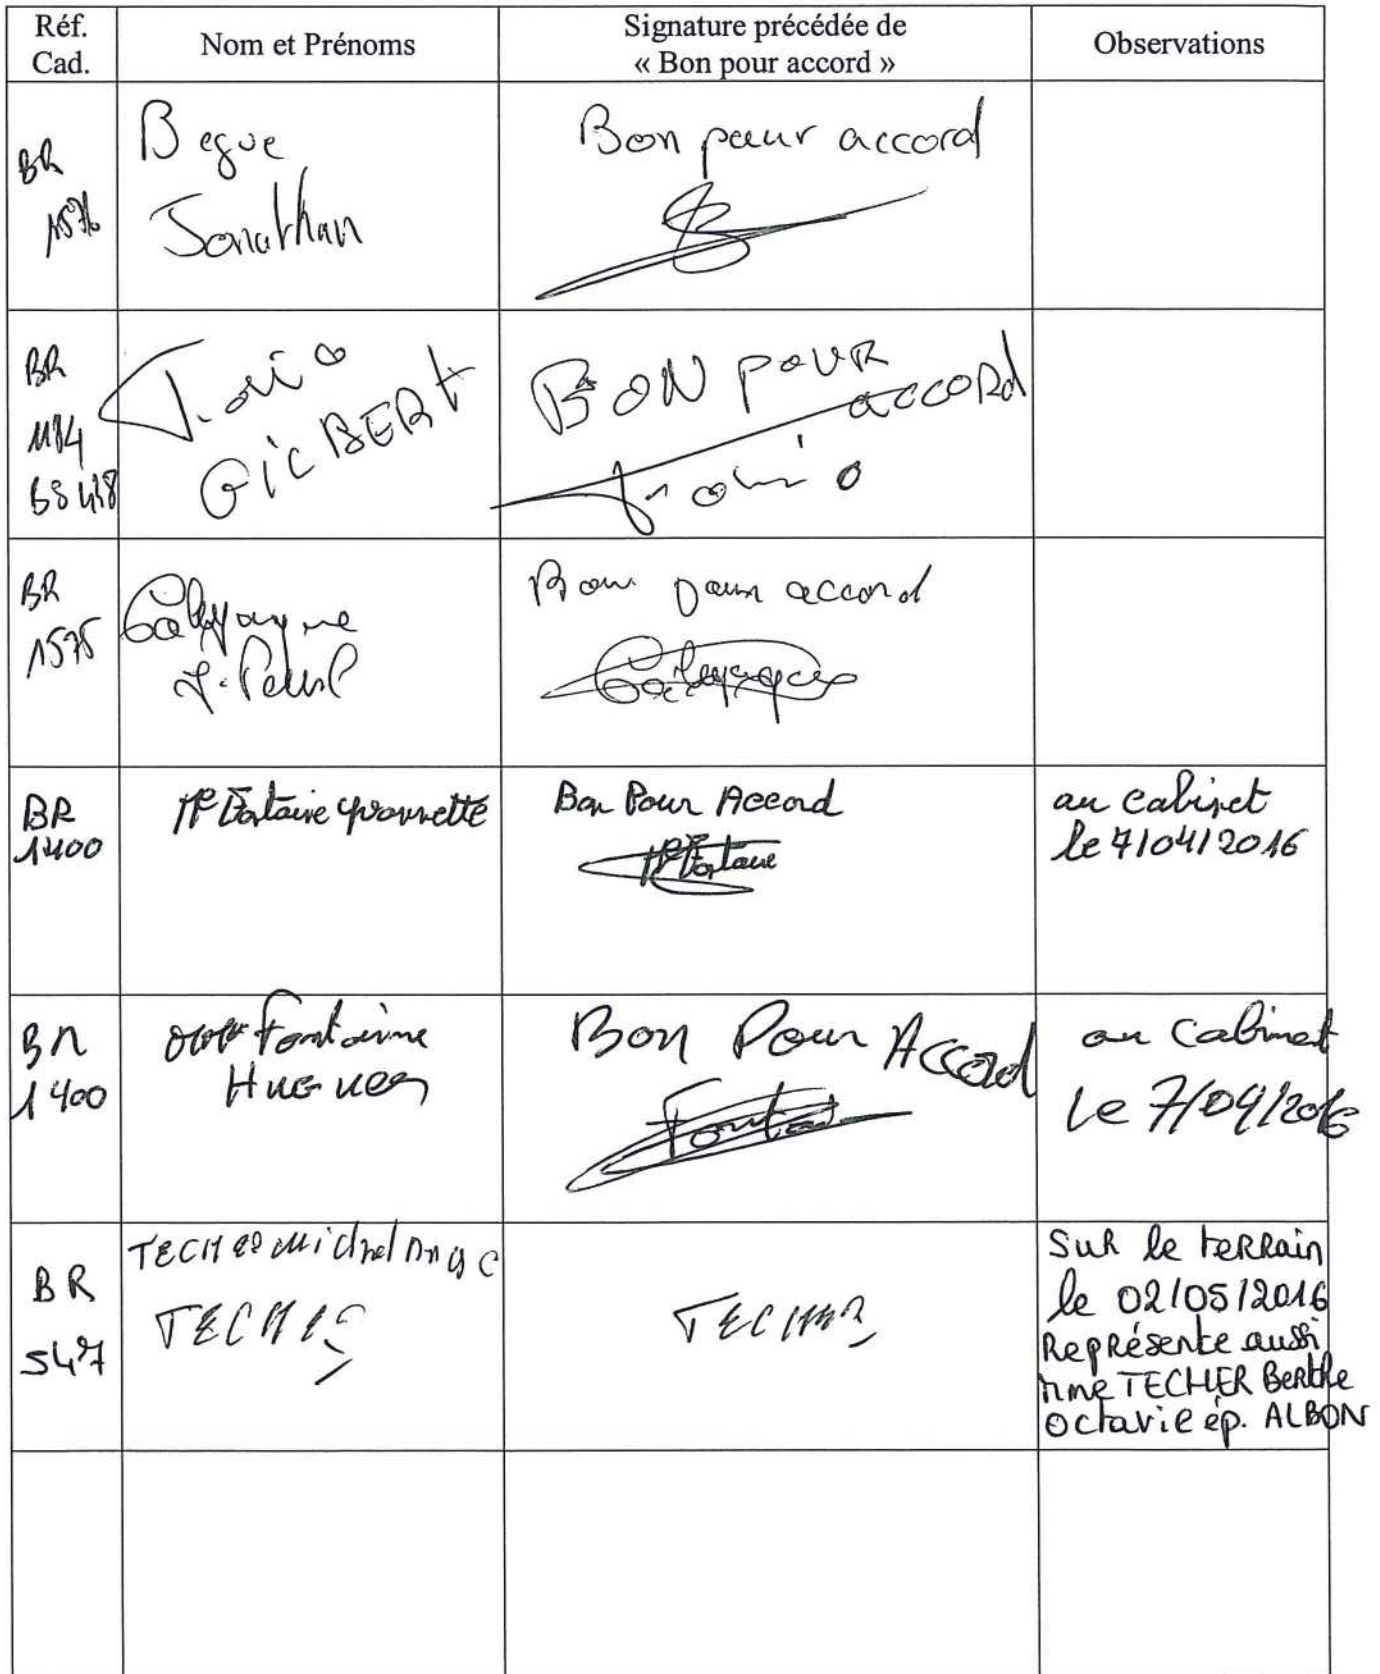 Réf.
Cad.
Nom et Prénoms
Signature précédée de
« Bon pour accord »
Observations
BR
1576
Begue
Jonathan
Bon pour accord
BR
1184
GILBERT
BON POUR
accord
BR
1575
J. Paul
Bon pour accord
BR
1400
Fontaine yvonnette
Bon Pour Accord
Fontaine
au cabinet
le 7/04/2016
BR
1400
Fontaine
Hugues
Bon Pour Accord
au cabinet
le 7/04/2016
BR
547
TECHER Michel Ange
TECHER
TECHER
Sur le terrain
le 02/05/2016
Représente aussi
Mme TECHER Berthe
Octavie ép. ALBON